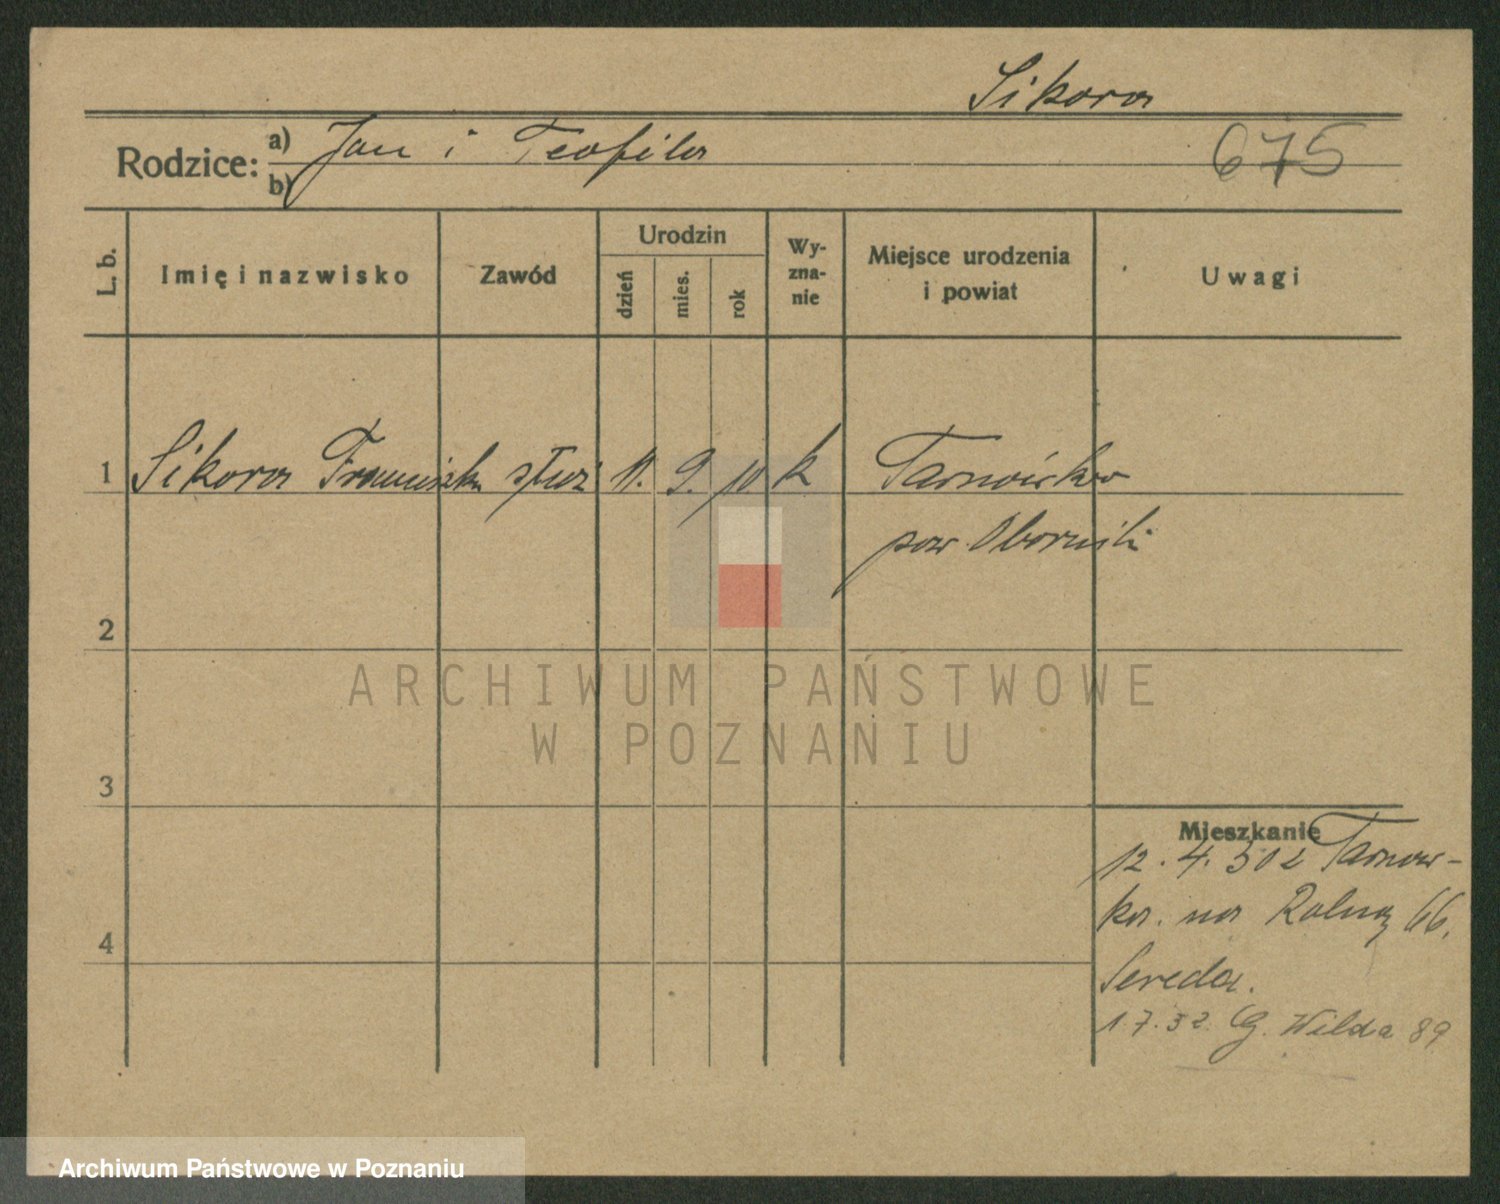 Sikora
Rodzice: a) Jan i Teofila
b)
675
L. b. Imię i nazwisko Zawód Urodzin dzień mies. rok Wyznanie Miejsce urodzenia i powiat Uwagi
1 Sikora Franciszka służ 11. 9. 10 k Tarnówko
pow. Oborniki
2
3
4
Mieszkanie
12. 4. 302 Tarnow-
ka. na Rolną 66.
Sereda.
1.7.32. G. Wilda 89
ARCHIWUM PAŃSTWOWE
W POZNANIU
Archiwum Państwowe w Poznaniu